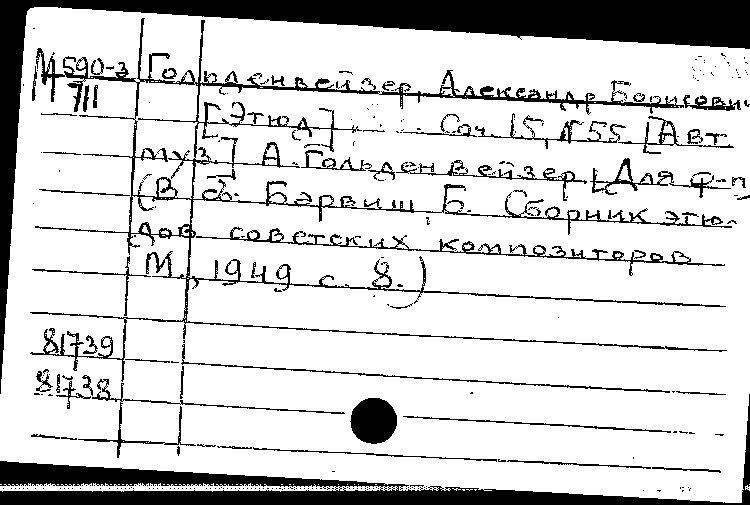 М590-3 Гольденвейзер, Александр Борисович
711
[Этюд] Соч. 15, № 55. [Авт.
муз.] А. Гольденвейзер. [Для ф-п
(В сб. Барвиш, Б. Сборник этю-
дов советских композиторов
М., 1949 с. 8.)
81739
81738